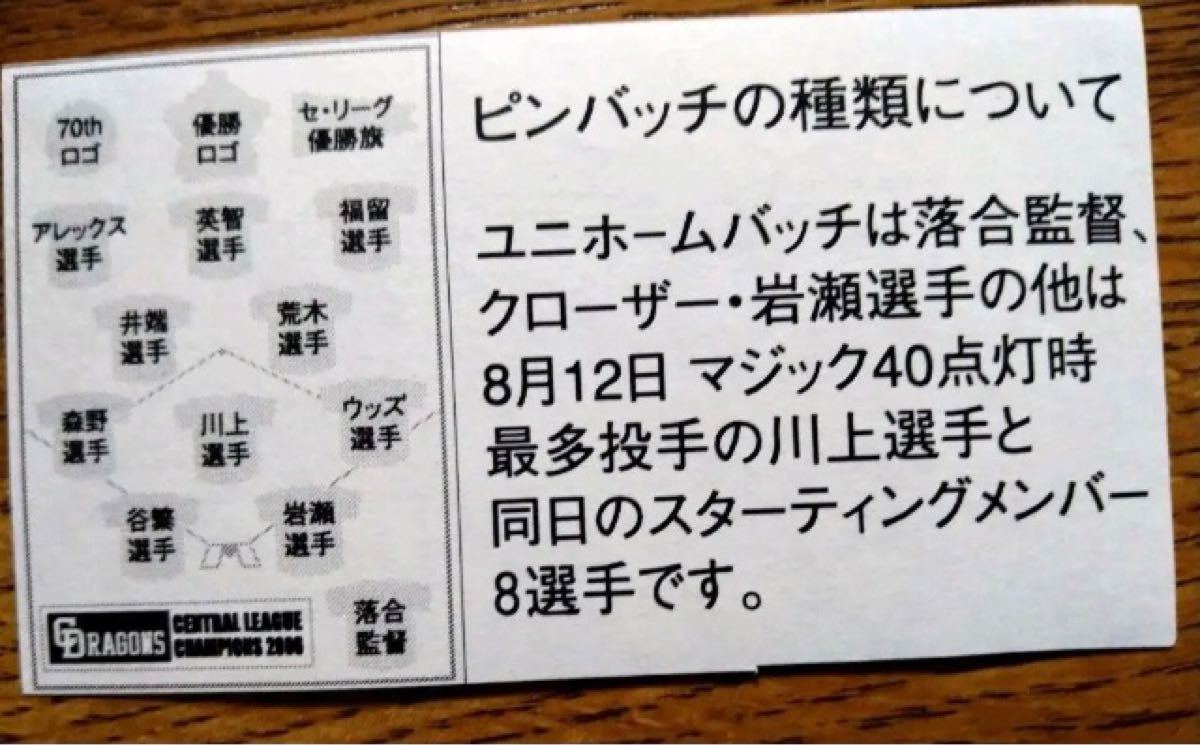 70th
ロゴ
優勝
ロゴ
セ・リーグ
優勝旗
アレックス
選手
英智
選手
福留
選手
井端
選手
荒木
選手
森野
選手
川上
選手
ウッズ
選手
谷繁
選手
岩瀬
選手
CDRAGONS
CENTRAL LEAGUE
CHAMPIONS 2006
落合
監督
ピンバッチの種類について
ユニホームバッチは落合監督、
クローザー・岩瀬選手の他は
8月12日 マジック40点灯時
最多投手の川上選手と
同日のスターティングメンバー
8選手です。